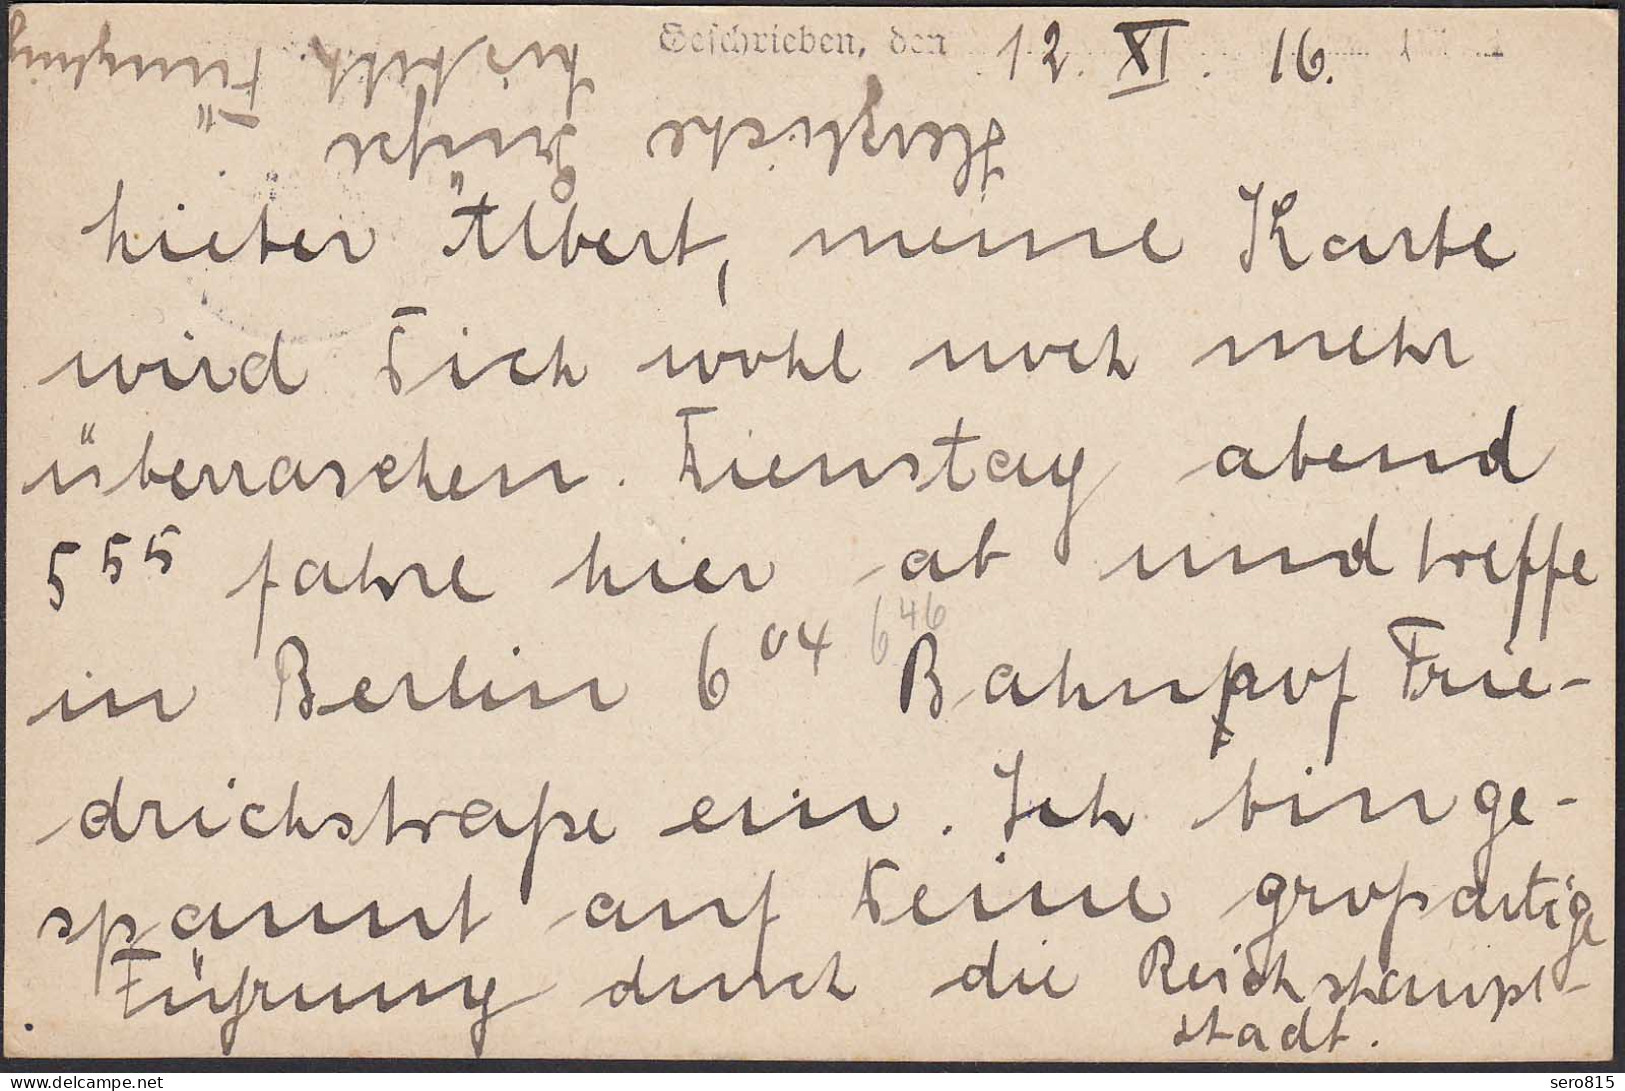 Geschrieben, den 12. XI. 16.
Lieber Albert, meine Karte
wird Dich wohl noch mehr
überraschen. Dienstag abend
5 55 fahre hier ab und treffe
in Berlin 6 04 6 46 Bahnhof Frie-
drichstraße ein. Ich bin ge-
spannt auf Deine großartige
Führung durch die Reichshaupt-
stadt.
Herzliche Grüße